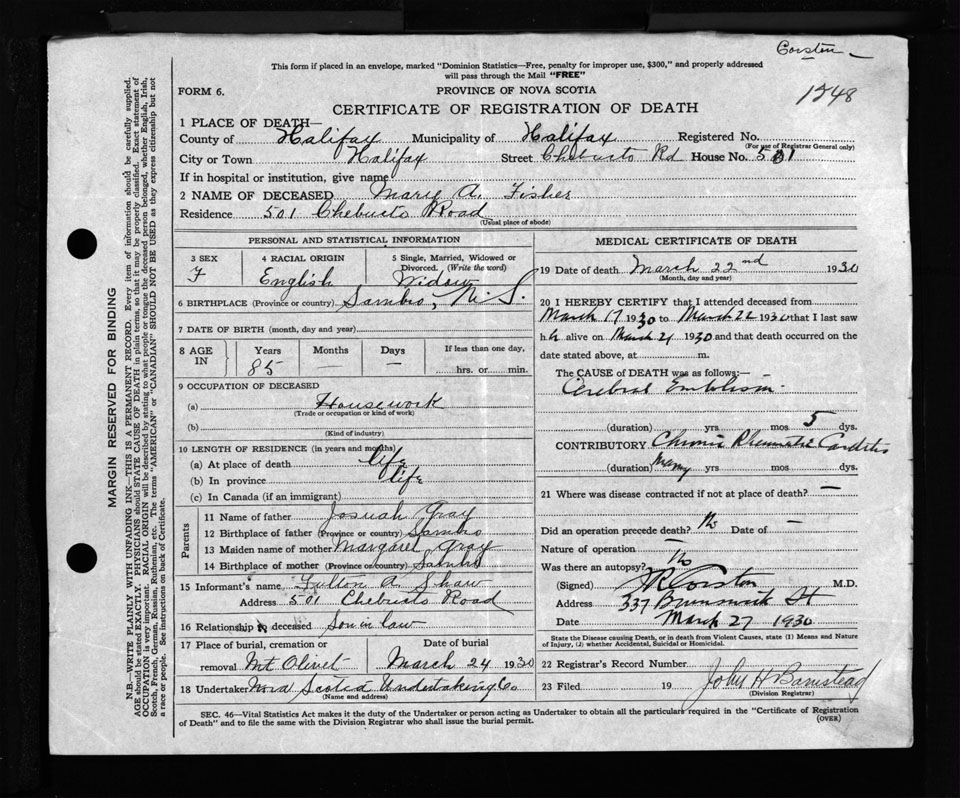 Corston
1248
This form if placed in an envelope, marked "Dominion Statistics—Free, penalty for improper use, $300," and properly addressed
will pass through the Mail "FREE"
FORM 6.
PROVINCE OF NOVA SCOTIA
CERTIFICATE OF REGISTRATION OF DEATH
1 PLACE OF DEATH—
County of Halifax Municipality of Halifax Registered No.
(For use of Registrar General only)
City or Town Halifax Street Chebucto Rd House No. 501
If in hospital or institution, give name
2 NAME OF DECEASED Mary A. Fisher
Residence 501 Chebucto Road
(Usual place of abode)
PERSONAL AND STATISTICAL INFORMATION
3 SEX
F
4 RACIAL ORIGIN
English
5 Single, Married, Widowed or
Divorced. (Write the word)
Widow
6 BIRTHPLACE (Province or country) Sambro, N.S.
7 DATE OF BIRTH (month, day and year)
8 AGE IN
Years
85
Months
—
Days
—
If less than one day,
hrs. or min.
9 OCCUPATION OF DECEASED
(a) Housework
(Trade or occupation or kind of work)
(b)
(Kind of industry)
10 LENGTH OF RESIDENCE (in years and months)
(a) At place of death life
(b) In province life
(c) In Canada (if an immigrant)
Parents
11 Name of father Josuah Gray
12 Birthplace of father (Province or country) Sambro
13 Maiden name of mother Margaret Gray
14 Birthplace of mother (Province or country) Sambro
15 Informant's name Fulton A. Shaw
Address 501 Chebucto Road
16 Relationship to deceased Son in law
17 Place of burial, cremation or
removal Mt Olivet
Date of burial
March 24 1930
18 Undertaker Nova Scotia Undertaking Co
(Name and address)
MEDICAL CERTIFICATE OF DEATH
19 Date of death March 22nd 1930
(Month, day and year)
20 I HEREBY CERTIFY that I attended deceased from
March 17 1930 to March 22 1930 that I last saw
her alive on March 21 1930 and that death occurred on the
date stated above, at m.
The CAUSE of DEATH was as follows:—
Cerebral Embolism
(duration) yrs mos 5 dys.
CONTRIBUTORY Chronic Rheumatic Carditis
(duration) Many yrs mos dys.
21 Where was disease contracted if not at place of death? —
Did an operation precede death? No Date of —
Nature of operation —
Was there an autopsy? No
(Signed) Corston M.D.
Address 337 Brunswick St
Date March 27 1930
State the Disease causing Death, or in death from Violent Causes, state (1) Means and Nature
of Injury, (2) whether Accidental, Suicidal or Homicidal.
22 Registrar's Record Number
23 Filed 19 John H Barnstead
(Division Registrar)
SEC. 46—Vital Statistics Act makes it the duty of the Undertaker or person acting as Undertaker to obtain all the particulars required in the "Certificate of Registration
of Death" and to file the same with the Division Registrar who shall issue the burial permit.
(OVER)
MARGIN RESERVED FOR BINDING
N.B.—WRITE PLAINLY WITH UNFADING INK—THIS IS A PERMANENT RECORD. Every item of information should be carefully supplied.
AGE should be stated EXACTLY. PHYSICIANS should STATE CAUSE OF DEATH in plain terms, so that it may be properly classified. Exact statement of
OCCUPATION is very important. RACIAL ORIGIN will be described by stating to what people or tongue the deceased person belonged, whether English, Irish,
Scotch, French, German, Russian, Ruthenian, etc. The terms "AMERICAN" or "CANADIAN" SHOULD NOT BE USED as they express citizenship but not
a race or people. See instructions on back of Certificate.